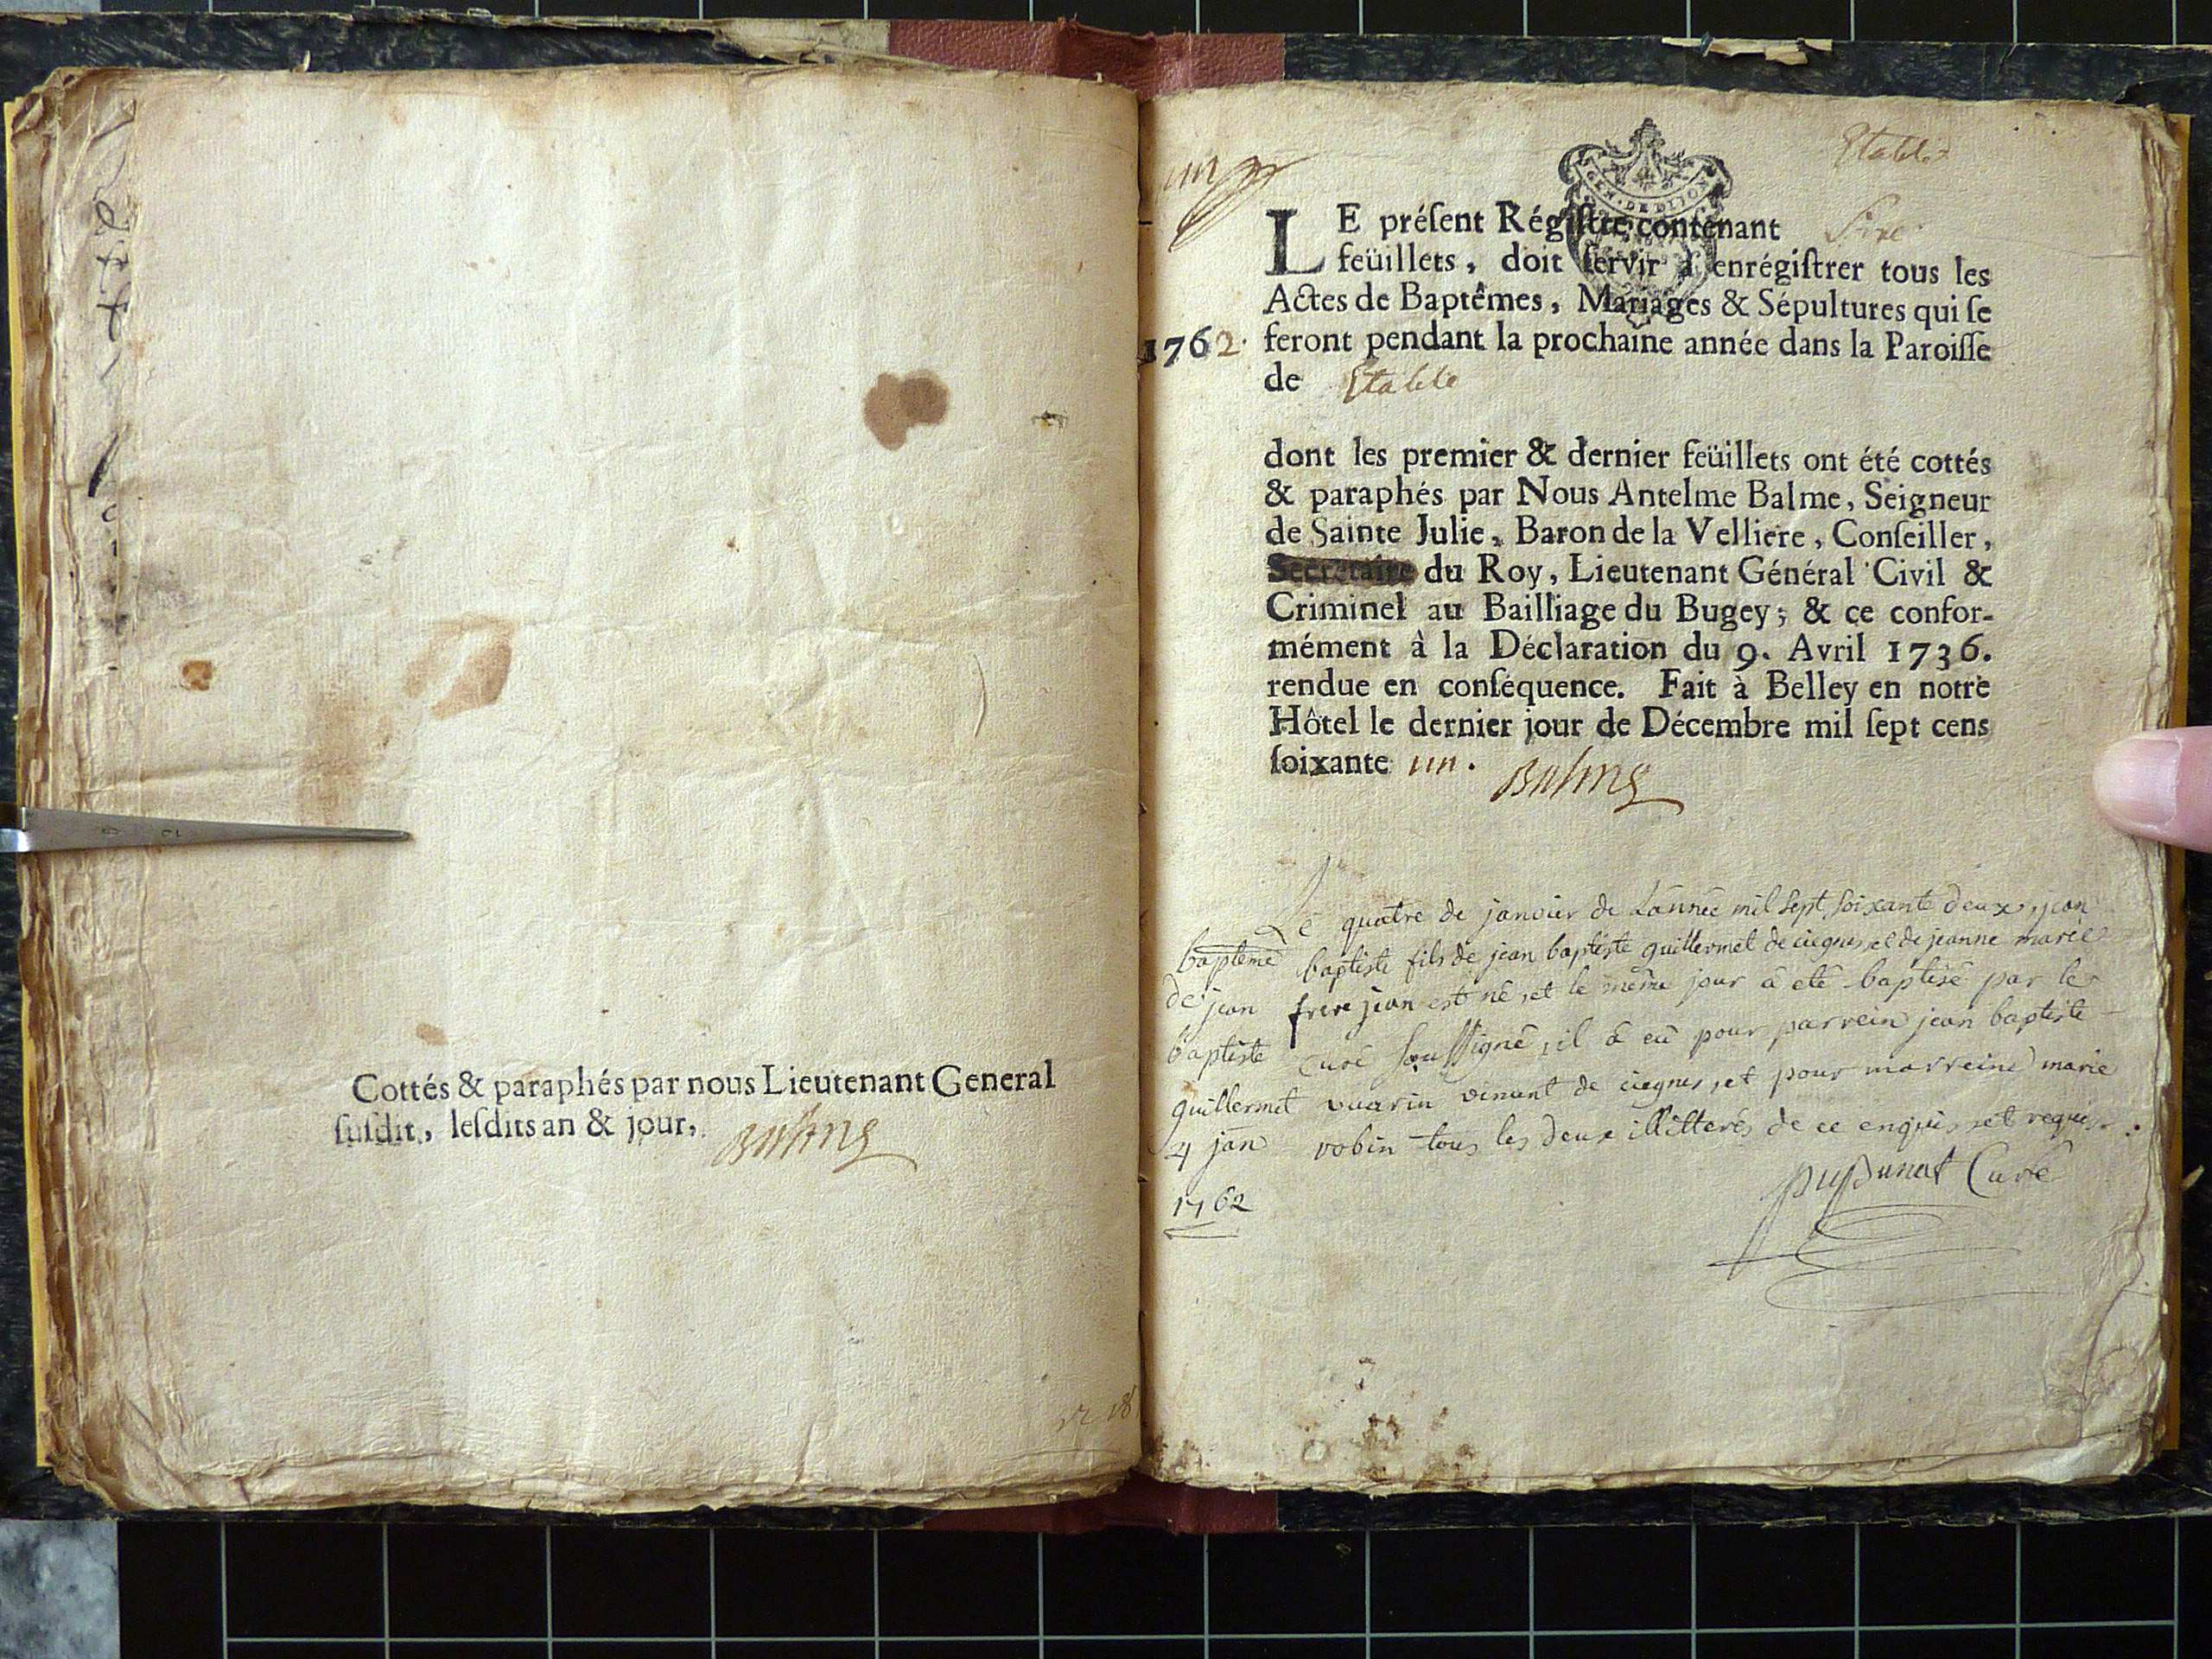 Cottés & paraphés par nous Lieutenant General
ſuſdit, leſdits an & jour,
Balme
un
GEN. DE DIJON
Etable
LE préſent Régiſtre contenant Sixe
feüillets, doit ſervir à enrégiſtrer tous les
Actes de Baptêmes, Mariages & Sépultures qui ſe
1762. feront pendant la prochaine année dans la Paroiſſe
de Etable
dont les premier & dernier feüillets ont été cottés
& paraphés par Nous Antelme Balme, Seigneur
de Sainte Julie, Baron de la Velliere, Conſeiller,
Secretaire du Roy, Lieutenant Général Civil &
Criminel au Bailliage du Bugey; & ce confor-
mément à la Déclaration du 9. Avril 1736.
rendue en conſéquence. Fait à Belley en notre
Hôtel le dernier jour de Décembre mil ſept cens
ſoixante un. Balme
baptême
de jean
baptiste
guillermet
4 jan
1762
Le quatre de janvier de L'année mil sept soixante deux, jean
baptiste fils de jean baptiste guillermet de ciegnes, et de jeanne marie
frere jean est né, et le même jour à eté baptisé par le
curé soussigné, il à eû pour parrein jean baptiste
vuarin venant de ciegnes, et pour marreine marie
robin tous les deux illitterés de ce enquis et requis.
Curé